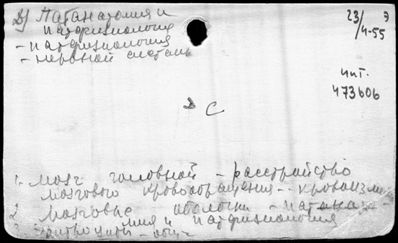 2) Патанатомия и
патфизиология
- патфизиология
- нервной системы
23/4-55
Э
инт.
473606
С
1. мозг головной - расстройство
мозгового кровообращения - кровоизл
2. Мозговые оболочки - патана-
мия и патфизиология